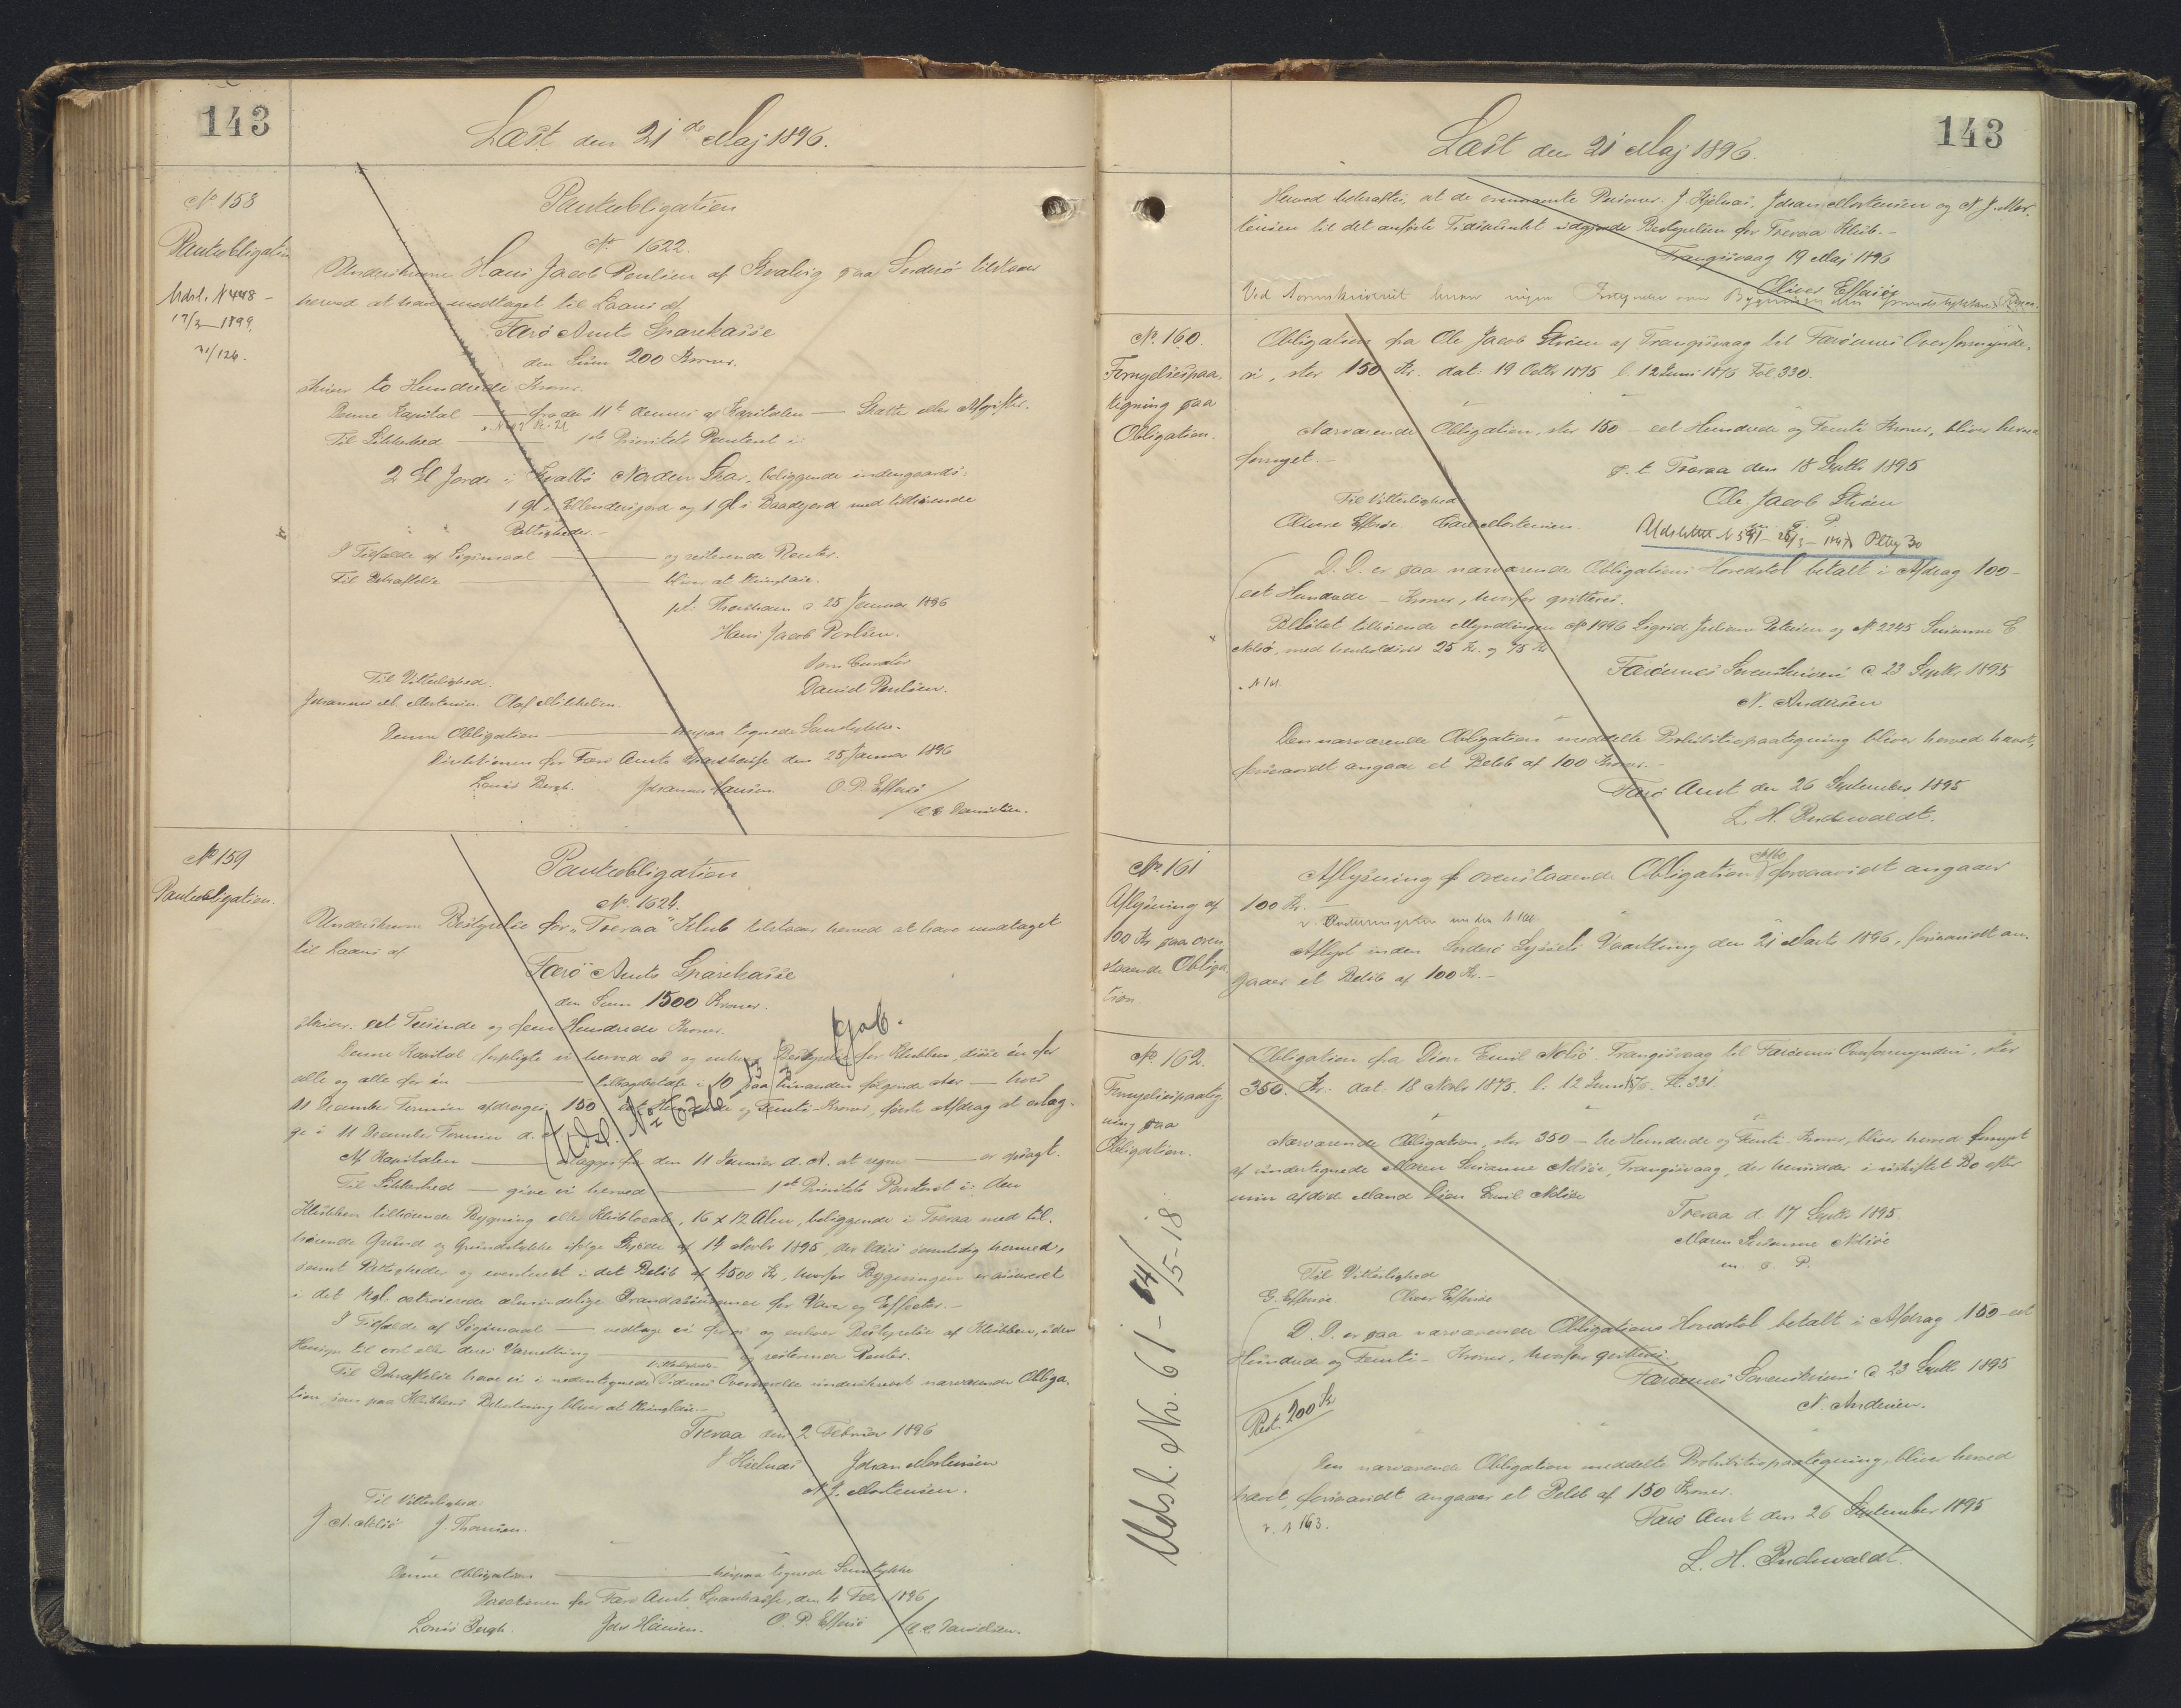 143
Læst den 21de Maj 1896.
No 158
Pantobligation
Udsl. N 448 -
17/3 1899.
Pantobligation
No 1622.
Underskrevne Hans Jacob Poulsen af Kvalvig paa Suderø tilstaaer
herved at have modtaget til Laans af
Færø Amts Sparekasse
den Sum 200 Kroner.
skriver to Hundrede Kroner.
Denne Kapital — fra den 11te dennes af Kapitalen — Skatter eller Afgifter.
Til Sikkerhed — 1ste Prioritets Panteret i:
2 Gl Jords i Kvalbø Norden Skar, beliggende indengaards:
1 Gl i Ellendesjord og 1 Gl i Baadejord med tilhørende
Rettigheder.-
I Tilfælde af Søgsmaal — og resterende Renter.
Til Bekræftelse — bliver at thinglæse.
pt. Thorshavn d. 25 Januar 1896
Hans Jacob Poulsen.
Som Curator
David Poulsen.
Til Vitterlighed.
Johannes M Mortensen. Olaf Mikkelsen.
Denne Obligation — herpaa tegnede Samtykke.
Direktionen for Færø Amts Sparekasse den 25 Januar 1896
Louis Bergh. Johannes Hansen. O. P. Effersø
/ C. C. Danielsen.
No 159
Pantobligation.
Pantobligation
No. 1624.
Underskrevne Bestyrelse for "Tveraa" Klub tilstaaer herved at have modtaget
til Laans af
Færø Amts Sparekasse
den Sum 1500 Kroner.
skriver eet Tusinde og fem Hundrede Kroner.
Denne Kapital forpligte vi herved os og enhver Bestyrelse for Klubben, disse én for
alle og alle for én — tilbagebetale i 10 paa hinanden følgende Aar — hver
11 December Termin afdrages 150 eet Hundrede og Femti Kroner, første Afdrag at erlæg-
ge i 11 December Termin d. A.
Udsl. No 626
Af Kapitalen — erlægges fra den 11 Januar d. A. at regne — er opsagt.
Til Sikkerhed — give vi herved — 1ste Prioritets Panteret i den
Klubben tilhørende Bygning eller Klublocale, 16 x 12 Alen, beliggende i Tveraa med til-
hørende Grund og Grundstykke ifølge Skjøde af 14 Novbr 1895, der læses samtidig hermed,
samt Rettigheder og eventuelt i det Beløb af 4500 Kr, hvorfor Bygningen er assureret
i det kgl. octroierede almindelige Brandassurance for Vare og Effecter.-
I Tilfælde af Søgsmaal — vedtage vi for os og enhver Bestyrelse af Klubben, uden
Hensyn til vort eller deres Værnething — og resterende Renter.
Til Bekræftelse have vi i nedentegnede Vidners Overværelse underskrevet nærværende Obliga-
tion, som paa Klubbens Bekostning bliver at thinglæse.-
Tveraa den 2 Februar 1896
J Kjelnæs Johan Mortensen
N. J. Mortensen.
Til Vitterlighed.
J. N. Nolsø J. Thomsen.
Denne Obligation — herpaa tegnede Samtykke
Directionen for Færø Amts Sparekasse, den 4 Febr 1896
Louis Bergh. Johs Hansen. O. P. Effersø / C. C. Danielsen.
143
Læst den 21 Maj 1896.
Herved bekræftes, at de ovennævnte Personer J. Kjelnæs, Johan Mortensen og N. J. Mor-
tensen til det anførte Tidspunkt udgjorde Bestyrelsen for Tveraa Klub.-
Trangisvaag 19 Maj 1896
Oliver Effersøe
Ved Sorenskriveriet
No. 160.
Fornyelsespaa-
tegning paa
Obligation.
Obligation fra Ole Jacob Strøm af Trangisvaag til Færøernes Overformynde-
ri, stor 150 Kr. dat. 19 Octbr 1875 l. 12 Juni 1876 Fol. 330.
Nærværende Obligation, stor 150 - eet Hundrede og Femti Kroner, bliver herved
fornyet.-
p. t. Tveraa den 18 Septbr 1895
Ole Jacob Strøm
m. f. P.
Til Vitterlighed
Oliver Effersøe. Carl Mortensen.
D. D. er paa nærværende Obligations Hovedstol betalt i Afdrag 100 -
eet Hundrede - Kroner, hvorfor qvitteres.
Beløbet tilhørende Myndlingen No 1996 Sigrid Juliane Petersen og No 2245 Susanne E
Nolsø, med henholdsvis 25 Kr. og 75 Kr
Færøernes Sorenskriveri d 23 Septbr 1895
N. Andersen
v. N 161.
Den nærværende Obligation meddelte Prohibitivpaategning bliver herved hævet,
forsaavidt angaar et Beløb af 100 Kroner.-
Færø Amt den 26 September 1895
L. H. Buchwaldt.
No. 161
Aflysning af
100 Kr paa oven-
staaende Obliga-
tion.
Aflysning af ovenstaaende Obligation No 160 forsaavidt angaaer
100 Kr.
Aflyst inden Suderø Syssels Vaarthing den 21 Marts 1896, forsaavidt an-
gaaer et Beløb af 100 Kr.-
No. 162.
Fornyelsespaateg-
ning paa
Obligation.
Udsl. Nr. 61 - 14/5 - 18
Obligation fra Dion Emil Nolsø Trangisvaag til Færøernes Overformynderi, stor
350. Kr. dat. 18 Novbr 1875. l. 12 Juni 1876. Fl. 331.
Nærværende Obligation, stor 350 - tre Hundrede og Femti Kroner, bliver herved fornyet
af undertegnede Maren Susanne Nolsøe, Trangisvaag, der hensidder i uskiftet Bo efter
min afdøde Mand Dion Emil Nolsøe
Tveraa d. 17 Septbr 1895.
Maren Susanne Nolsøe
m. f. P.
Til Vitterlighed
G. Effersøe. Oliver Effersøe
D. D. er paa nærværende Obligations Hovedstol betalt i Afdrag 150 - eet
Hundrede og Femti - Kroner, hvorfor qvitteres.
Færøernes Sorenskriveri d 23 Septbr 1895
N. Andersen.
Rest. 200 Kr
Den nærværende Obligation meddelte Prohibitivpaategning, bliver herved
hævet, forsaavidt angaaer et Beløb af 150 Kroner.
v. N 163.
Færø Amt den 26 September 1895
L. H. Buchwaldt.